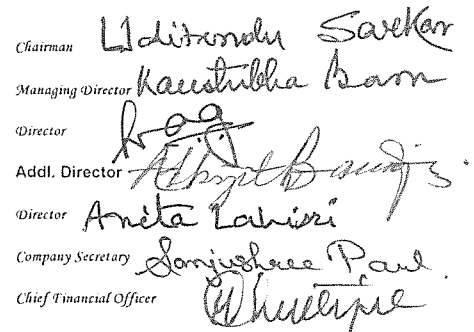 Chairman Uditendu Sarkar
Managing Director Kaustubha Basu
Director
Addl. Director
Director Anita Lahiri
Company Secretary Sanjushree Paul
Chief Financial Officer